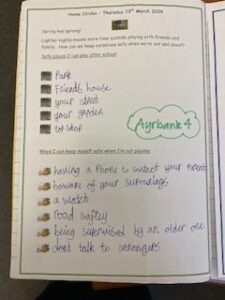 Home Circles - Thursday 15th March 2018
Spring has sprung!
Lighter nights means more time outside playing with friends and
family. How can we keep ourselves safe when we're out and about?
Safe places I can play after school
Park
Friends house
your street
your garden
toy shop
Ayrbank 4
Ways I can keep myself safe when I'm out playing
having a Phone to contact your Parents
beware of your surroundings
a watch
road saftey
being supervised by an older one
dont talk to strangers